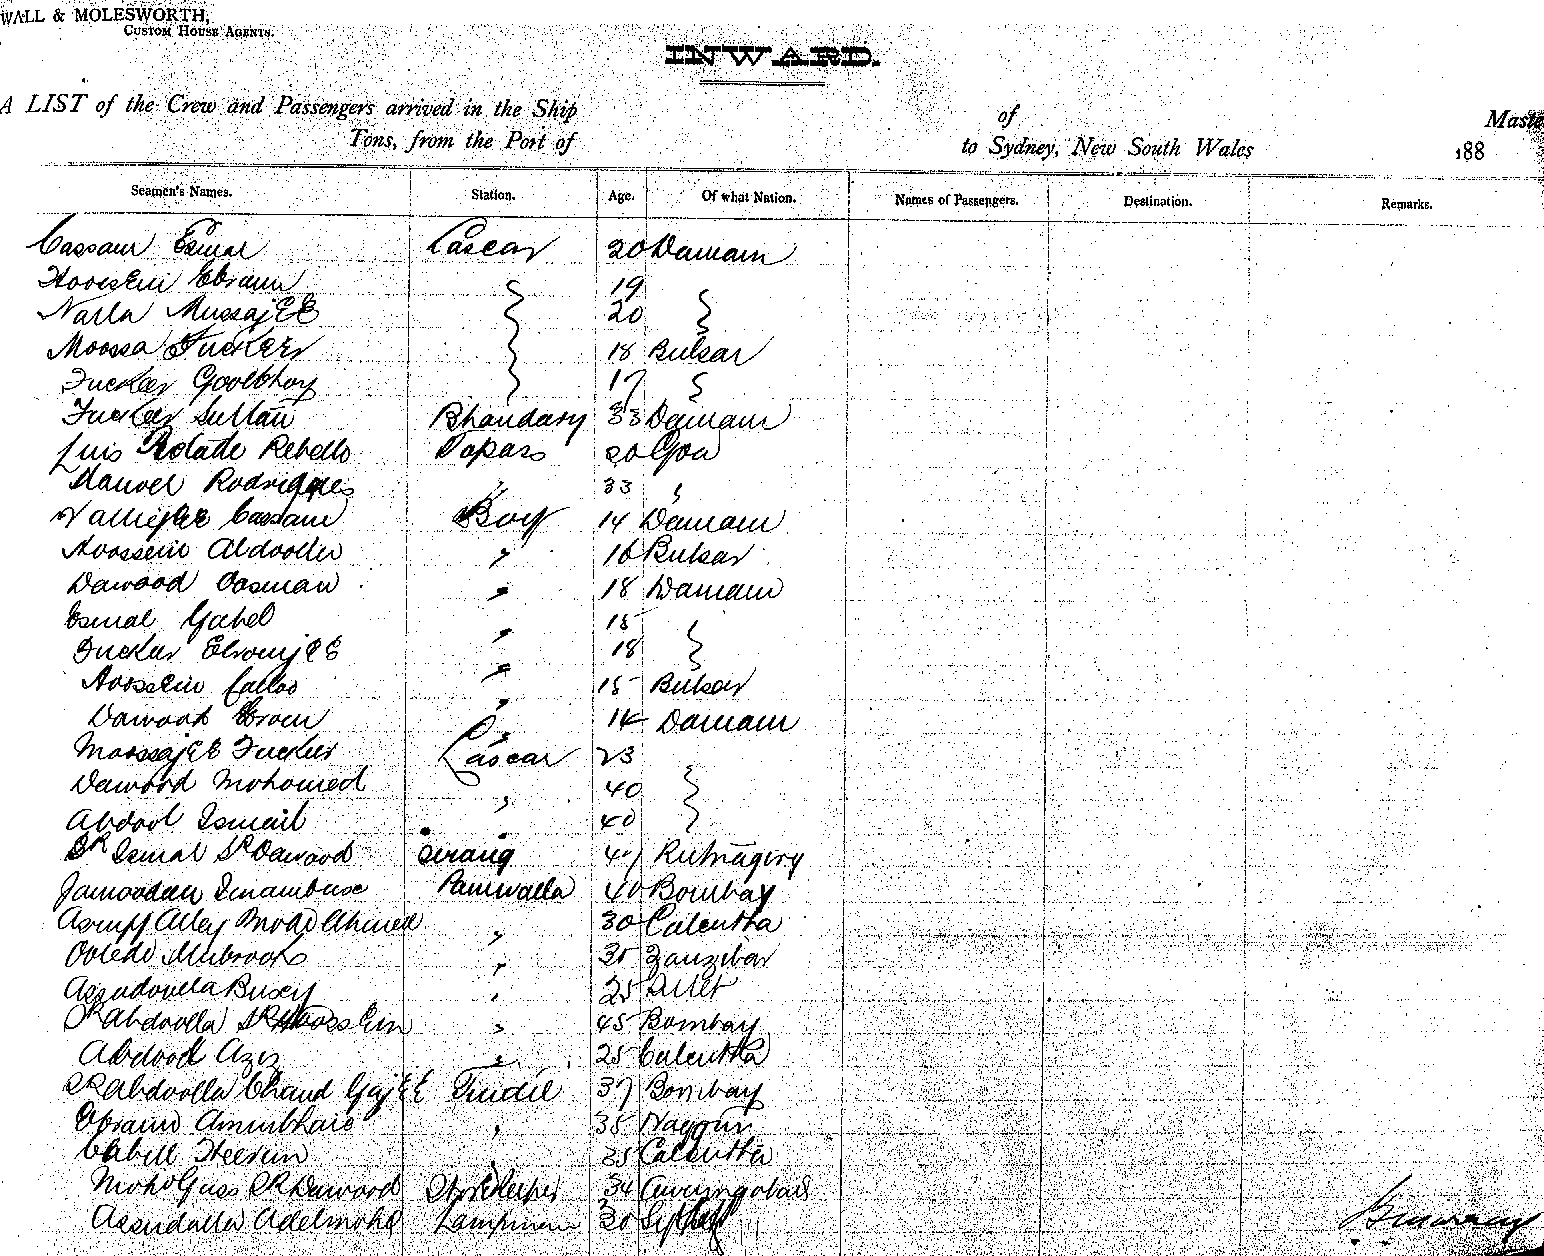 WALL & MOLESWORTH,
CUSTOM HOUSE AGENTS.
INWARD.
A LIST of the Crew and Passengers arrived in the Ship of Master
Tons, from the Port of to Sydney, New South Wales 188
Seamen's Names. Station. Age. Of what Nation. Names of Passengers. Destination. Remarks.
Cassam Esmal Lascar 20 Damam
Hoossein Ebram 19
Narla MussajEE 20
Moossa FuckEr 18 Bulsar
Fucker Goolbhoy 17
Fucker Sultan Bhandary 33 Damam
Luis Rebello Topass 20 Goa
Manoel Rodrigues 33
VallijEE Cassam Boy 14 Damam
Hoossein Abdoolla 16 Bulsar
Dawood Oosman 18 Damam
Esmal 15
Fucker EbramjEE 18
Hoossein 15 Bulsar
Dawood Ebram 14 Damam
MoossajEE Fucker Lascar 23
Dawood Mohomed 40
Abdool Ismail 40
SK Ismal SK Dawood Serang 47 Rutnagiry
Jamoodeen Imambuse Paniwalla 40 Bombay
Asruff Alley Mohd Ahmed 30 Calcutta
Mubrook 35 Zanzibar
Assudoolla Buxy 25
SK Abdoolla SK HoossEin 45 Bombay
Abdool Aziz 25 Calcutta
SK Abdoolla Chand Tindil 37 Bombay
Ebram Aminbhaie 35
35 Calcutta
Moho SK Dawood StorEkeeper 34 Aurungabad
Assudalla Lampman 30